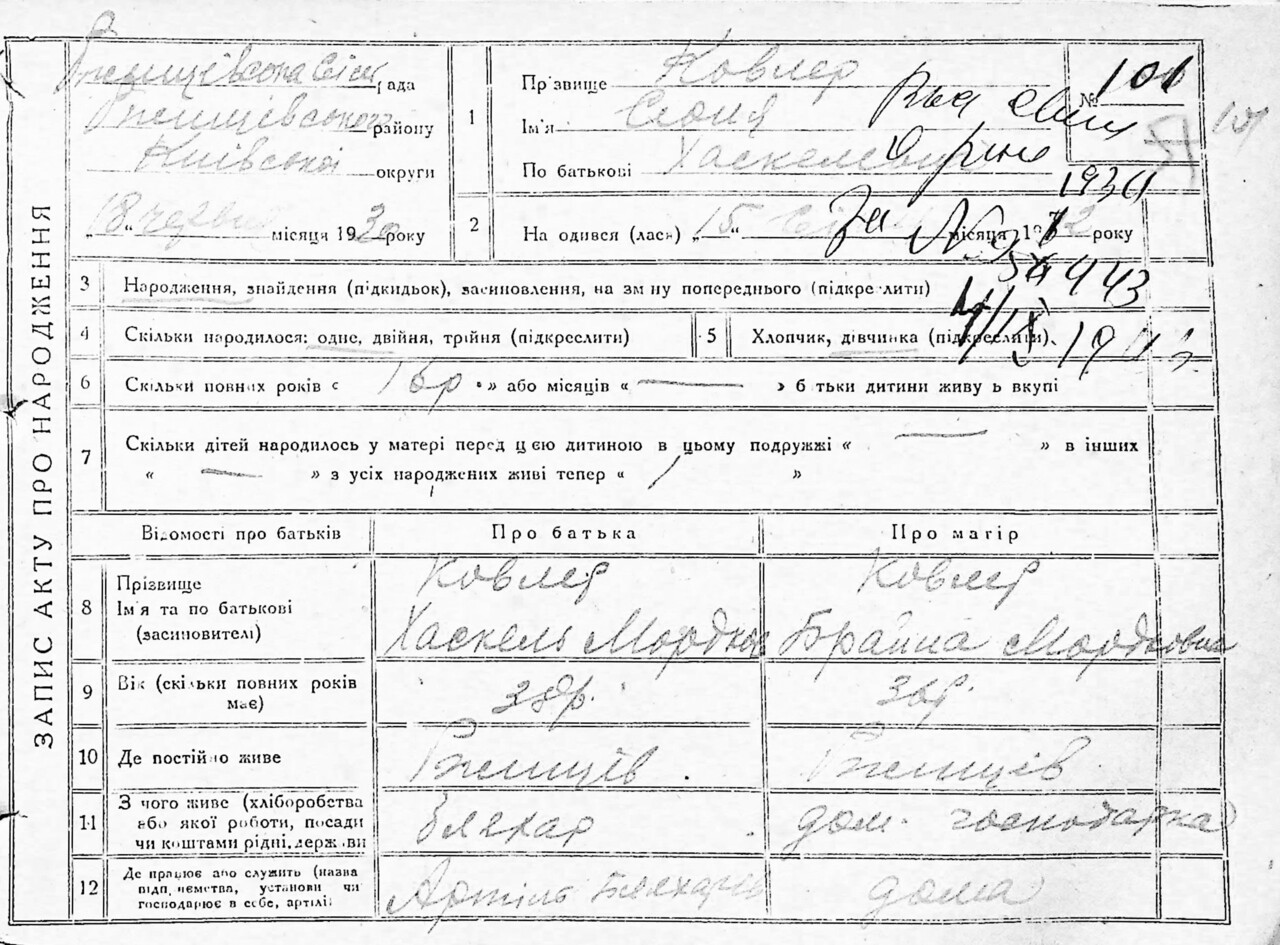 ЗАПИС АКТУ ПРО НАРОДЖЕННЯ
Ржищівська рада
Ржищівського району
Київської округи
„18“ місяця 1930 року
1
Пр'звище Ковлер
Ім'я Соня
По батькові
№ 101
101
1930
2
На одився (лась) „15“ місяця року
За №
3
Народження, знайдення (підкидьок), засиновлення, на зм ну попереднього (підкре лити)
4
Скільки народилося: одне, двійня, трійня (підкреслити)
5
Хлопчик, дівчинка (підкреслити).
6
Скільки повних років « » або місяців « — » б тьки дитини живу ь вкупі
7
Скільки дітей народилось у матері перед цією дитиною в цьому подружжі « — » в інших
« — » з усіх народжених живі тепер « / »
Відомості про батьків
Про батька
Про матір
8
Прізвище
Ім'я та по батькові
(засиновителі)
Ковлер
Хаскель Мордков
Ковлер
Брайна Мордковна
9
Вік (скільки повних років
має)
10
Де постійно живе
Ржищів
Ржищів
11
З чого живе (хліборобства
або якої роботи, посади
чи коштами рідні, держ ви
Бляхар
дом. господарка
12
Де працює або служить (назва
підп. иємства, установи чи
господарює в себе, артілі)
Артіль Бляхарів
дома